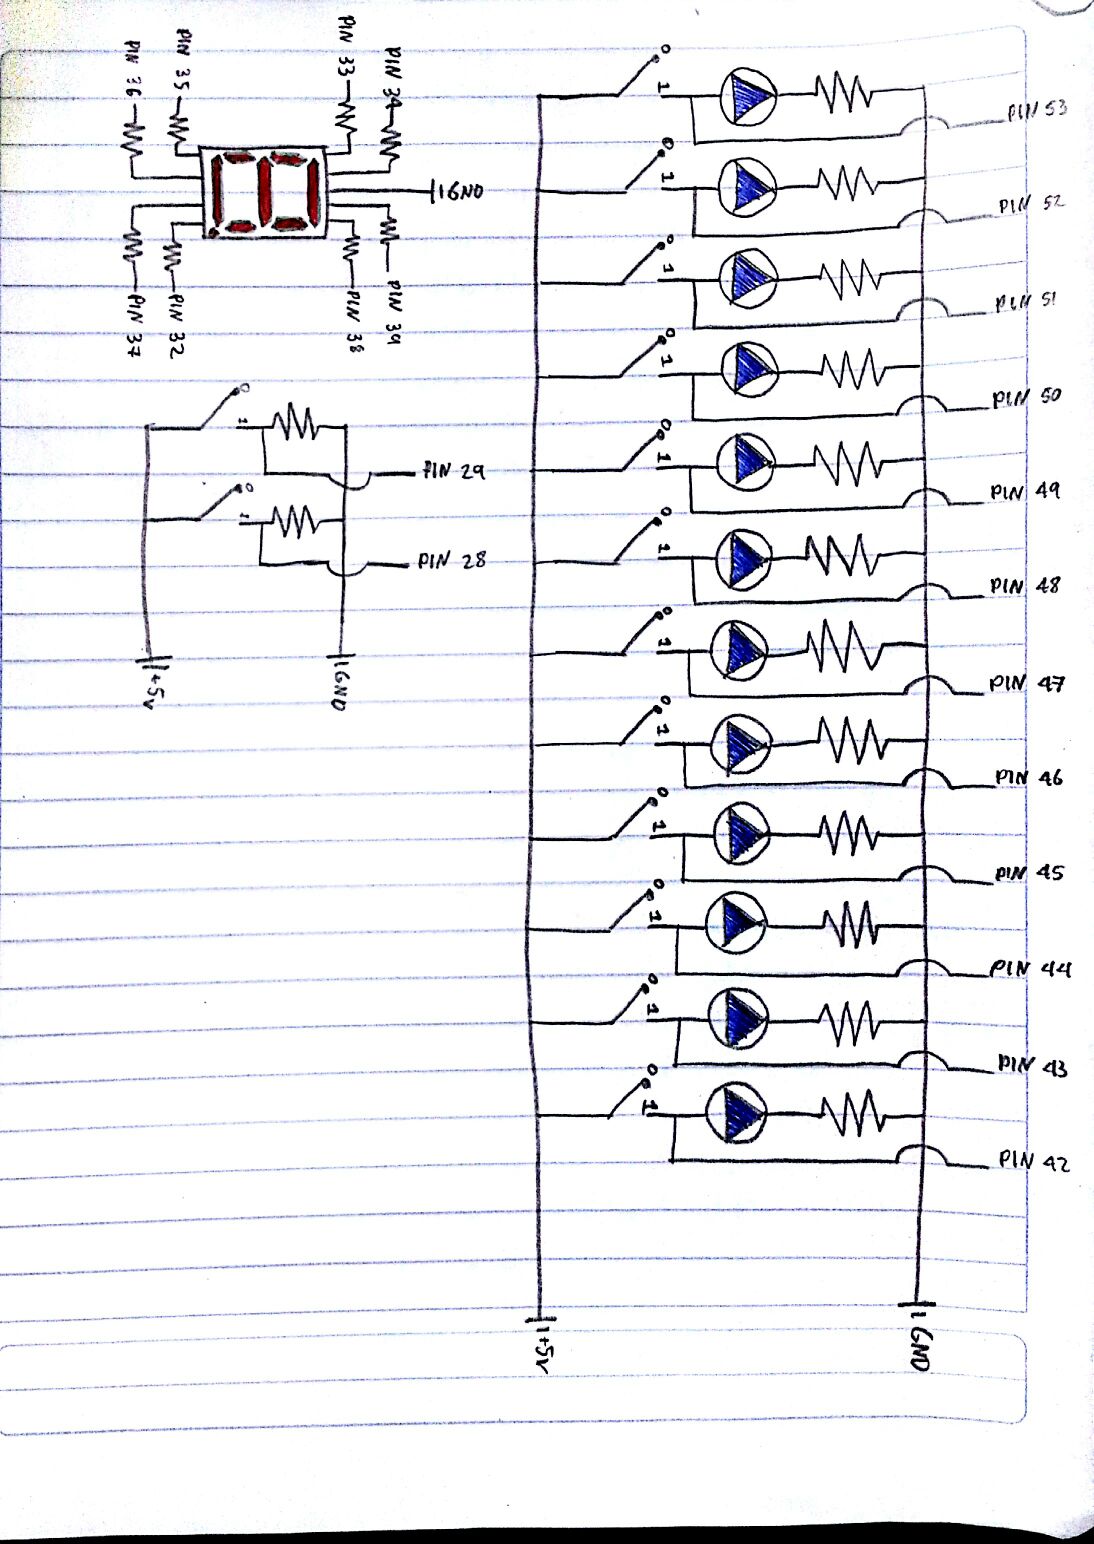 PIN 36
PIN 35
PIN 33
PIN 34
GND
PIN 37
PIN 32
PIN 38
PIN 39
0
1
PIN 29
0
1
PIN 28
+5v
GND
0
1
PIN 53
0
1
PIN 52
0
1
PIN 51
0
1
PIN 50
0
1
PIN 49
0
1
PIN 48
0
1
PIN 47
0
1
PIN 46
0
1
PIN 45
0
1
PIN 44
0
1
PIN 43
0
1
PIN 42
+5v
GND